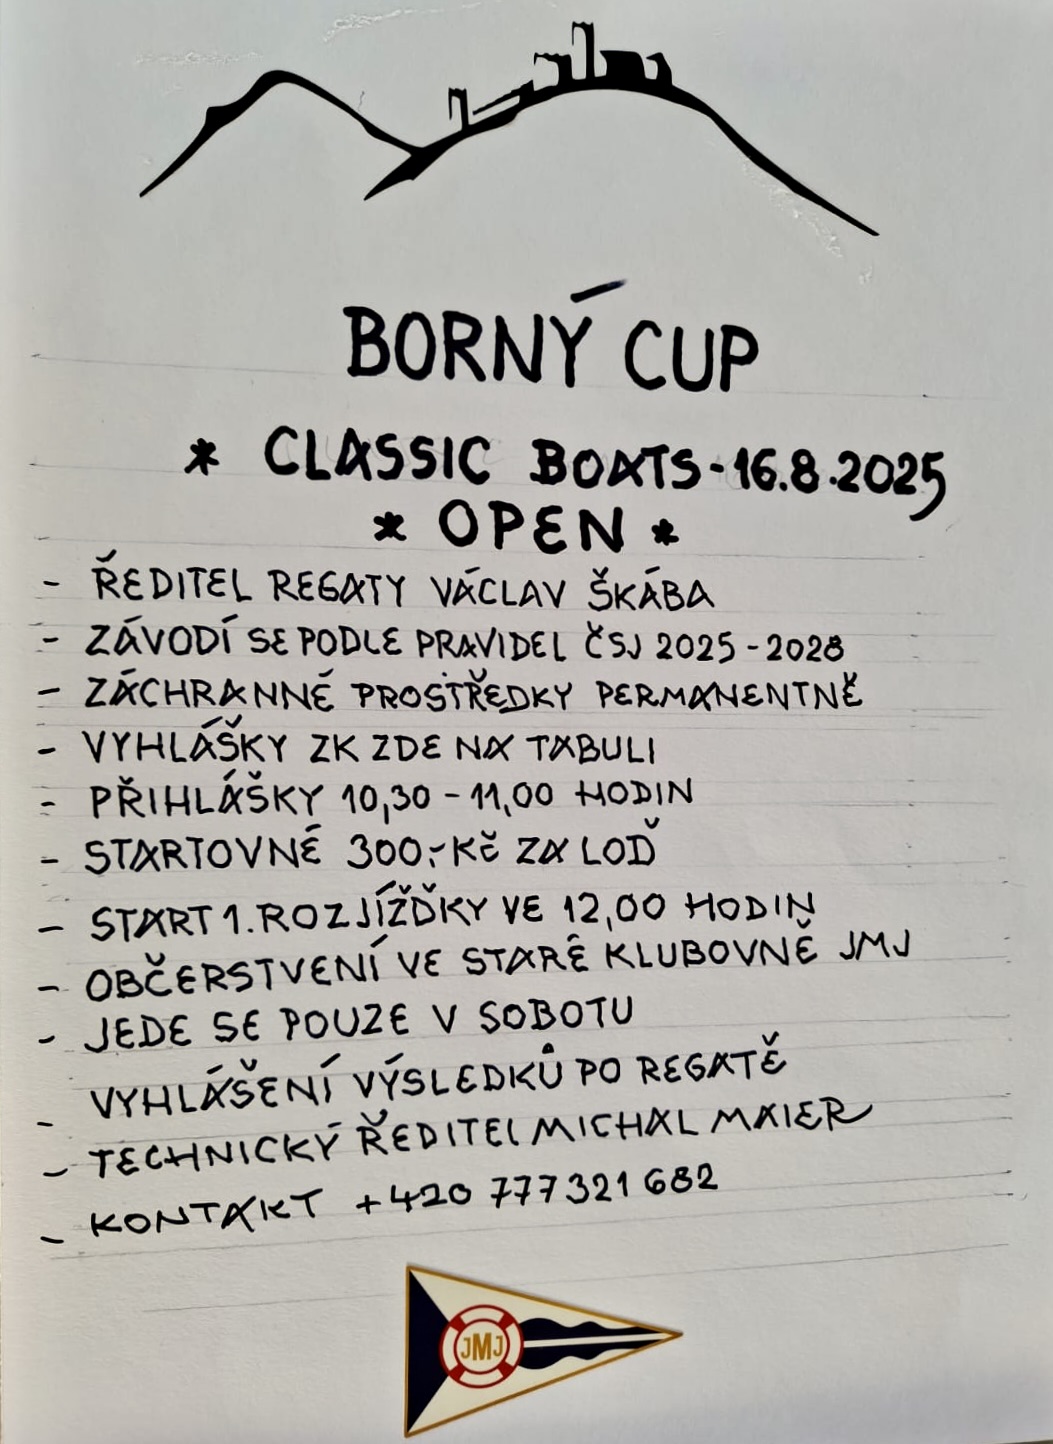 BORNÝ CUP
* CLASSIC BOATS - 16.8.2025
* OPEN *
- ŘEDITEL REGATY VÁCLAV ŠKÁBA
- ZÁVODÍ SE PODLE PRAVIDEL ČSJ 2025 - 2028
- ZÁCHRANNÉ PROSTŘEDKY PERMANENTNĚ
- VYHLÁŠKY ZK ZDE NA TABULI
- PŘIHLÁŠKY 10,30 - 11,00 HODIN
- STARTOVNÉ 300,- KČ ZA LOĎ
- START 1. ROZJÍŽĎKY VE 12,00 HODIN
- OBČERSTVENÍ VE STARÉ KLUBOVNĚ JMJ
- JEDE SE POUZE V SOBOTU
- VYHLÁŠENÍ VÝSLEDKŮ PO REGATĚ
- TECHNICKÝ ŘEDITEL MICHAL MAIER
- KONTAKT +420 777 321 682
JMJ